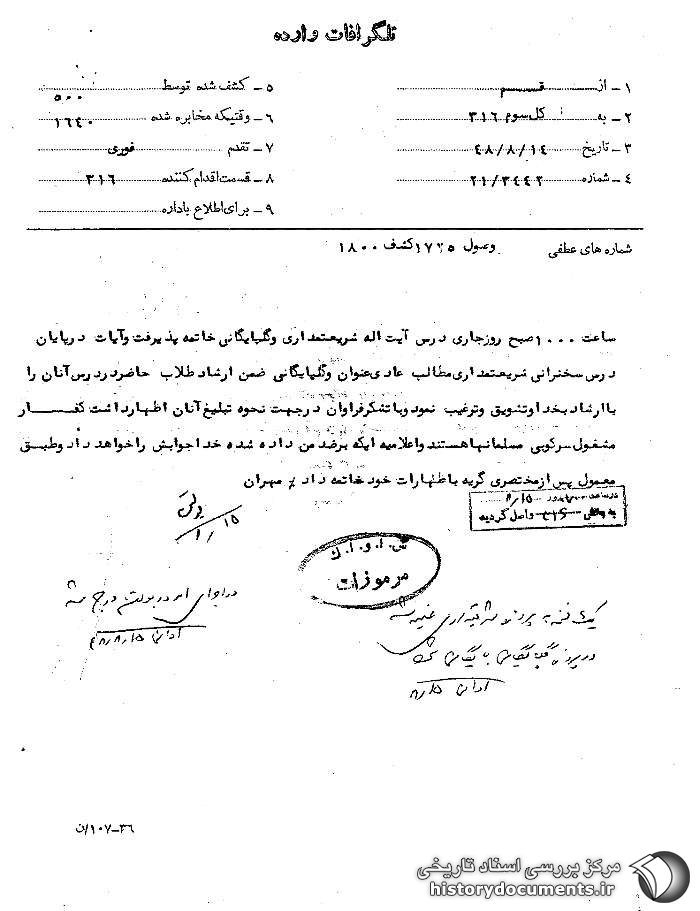 تلگرافات وارده
۱ـ از قم
۲ـ به کل سوم ۳۱۶
۳ـ تاریخ ۴۸/۸/۱۴
۴ـ شماره ۲۱/۳۴۴۲
۵ـ کشف شده توسط
۵۰۰
۶ـ وقتیکه مخابره شده ۱۶۴۰
۷ـ تقدم فوری
۸ـ قسمت اقدام کننده ۳۱۶
۹ـ برای اطلاع باداره
شماره های عطفی وصول ۱۷۲۵ کشف ۱۸۰۰
ساعت ۱۰۰۰ صبح روزجاری درس آیت اله شریعتمداری وگلپایگانی خاتمه پذیرفت وآیات درپایان
درس سخنرانی شریعتمداری مطالب عادی عنوان وگلپایگانی ضمن ارشاد طلاب حاضردردرس آنان را
باارشاد بخدا وتشویق وترغیب نمود وباتشکرفراوان درجهت نحوه تبلیغ آنان اظهارداشت کفــــار
مشغول سرکوبی مسلمانها هستند واعلامیه ایکه برضد من داده شده خداجوابش راخواهد داد وطبق
معمول پس ازمختصری گریه باظهارات خود خاتمه داد٪ مهران
۸/۱۵
واصل گردید
س.ا.و.ا.ک
مرموزات
۸/۱۵
در اجرای امر در بولتن درج شد
۴۸/۸/۱۵
یک نسخه به پرونده شریعتمداری ضمیمه
در پرونده گلپایگانی بایگانی شود
۸/۱۵
۳۶-۱۰۷/ن
مرکز بررسی اسناد تاریخی
historydocuments.ir